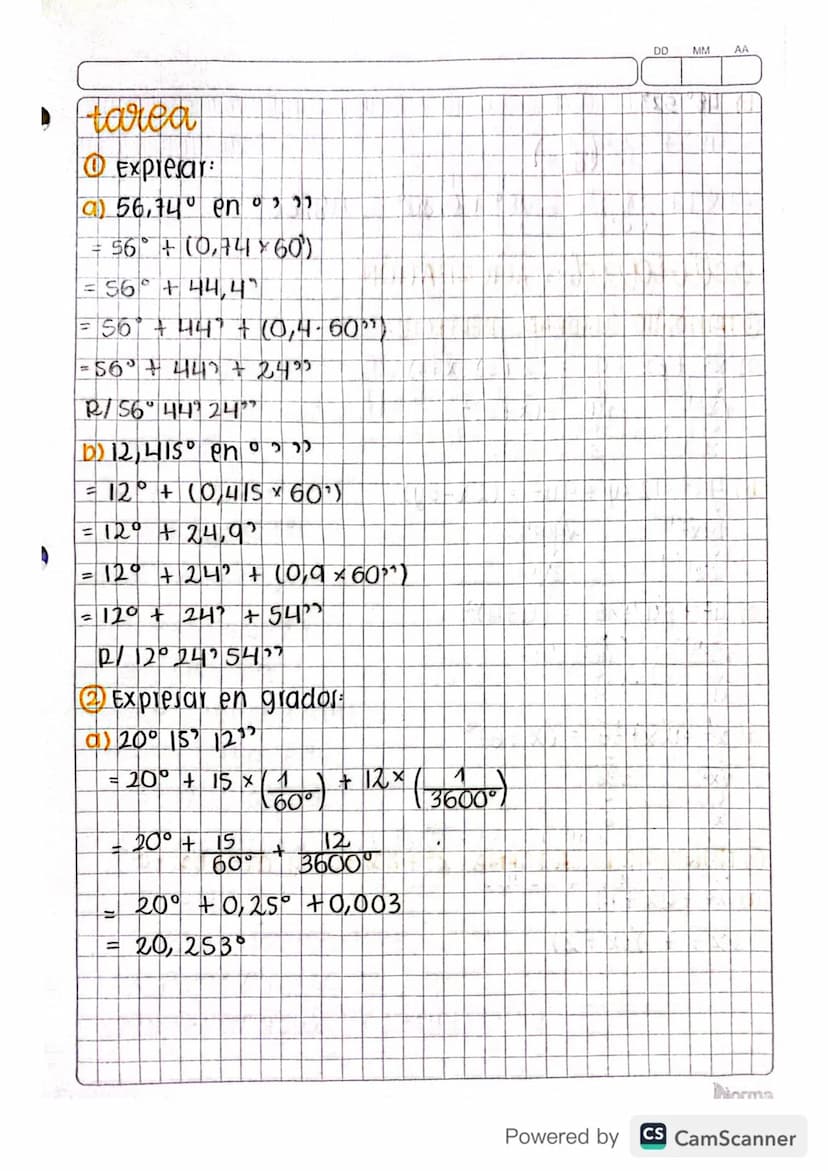 DD MM AA
tarea
① Expresar:
a) 56,74° en ° ’ ’’
= 56° + (0,74 × 60’)
= 56° + 44,4’
= 56° + 44’ + (0,4 · 60’’)
= 56° + 44’ + 24’’
R/ 56° 44’ 24’’
b) 12,415° en ° ’ ’’
= 12° + (0,415 × 60’)
= 12° + 24,9’
= 12° + 24’ + (0,9 × 60’’)
= 12° + 24’ + 54’’
R/ 12° 24’ 54’’
② Expresar en grados:
a) 20° 15’ 12’’
= 20° + 15 × (1/60°) + 12 × (1/3600°)
= 20° + 15/60° + 12/3600°
= 20° + 0,25° + 0,003
= 20,253°
Norma
Powered by CS CamScanner